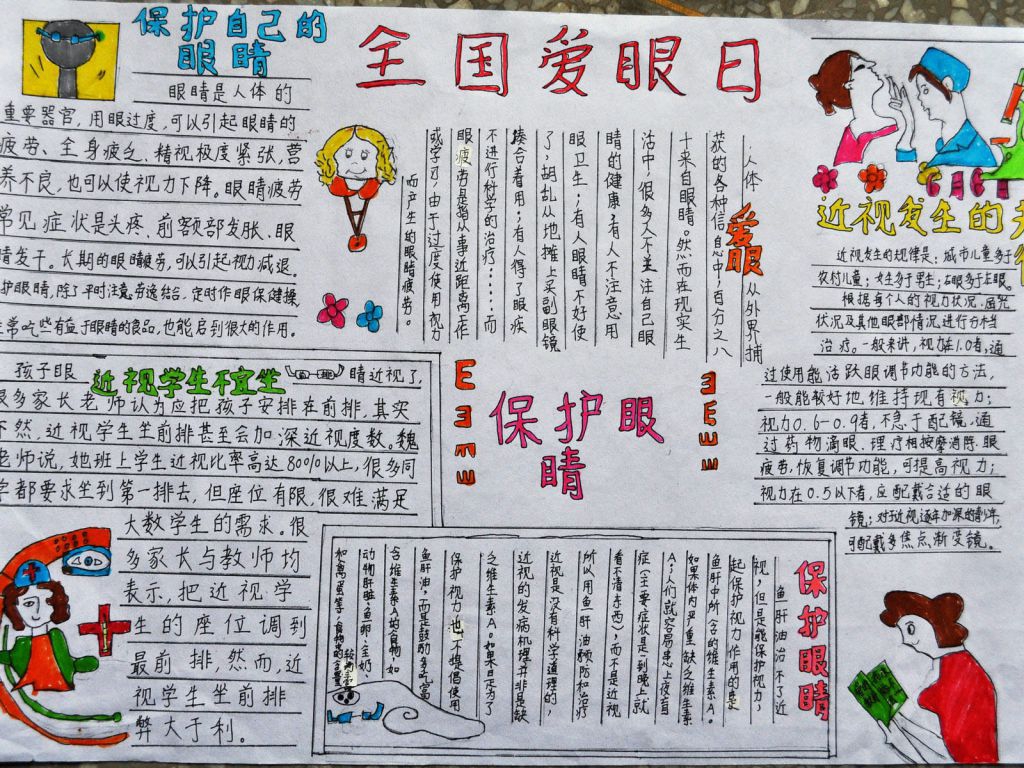 全国爱眼日
保护自己的
眼睛
眼睛是人体的
重要器官,用眼过度,可以引起眼睛的
疲劳、全身疲乏、精视极度紧张,营
养不良,也可以使视力下降。眼睛疲劳
常见症状是头疼、前额部发胀、眼
睛发干。长期的眼睛疲劳,可以引起视力减退。
护眼睛,除了平时注意劳逸结合,定时作眼保健操,
常吃些有益于眼睛的食品,也能启到很大的作用。
爱眼
人体从外界捕
获的各种信息中,百分之八
十来自眼睛。然而在现实生
活中,很多人不关注自己眼
睛的健康:有人不注意用
眼卫生;有人眼睛不好使
了,胡乱从地摊上买副眼镜
凑合着用;有人得了眼疾
不进行科学的治疗……而
眼疲劳是指从事近距离工作
或学习,由于过度使用视力
而产生的眼睛疲劳。
6月6日
近视发生的
近视发生的规律是:城市儿童多于
农村儿童;女生多于男生;右眼多于左眼。
根据每个人的视力状况、屈光
状况及其他眼部情况,进行分档
治疗。一般来讲,视力在1.0者,通
过使用能活跃眼调节功能的方法,
一般能较好地维持现有视力;
视力0.6-0.9者,不急于配镜,通
过药物滴眼、理疗相按摩消除眼
疲劳,恢复调节功能,可提高视力;
视力在0.5以下者,应配戴合适的眼
镜;对于近视逐年加深的青少年,
可配戴多焦点渐变镜。
近视学生不宜坐
孩子眼睛近视了,
很多家长老师认为应把孩子安排在前排,其实
不然,近视学生坐前排甚至会加深近视度数。魏
老师说,她班上学生近视比率高达80%以上,很多同
学都要求坐到第一排去,但座位有限,很难满足
大数学生的需求。很
多家长与教师均
表示,把近视学
生的座位调到
最前排,然而,近
视学生坐前排
弊大于利。
保护眼
睛
E
E
保护眼睛
鱼肝油治不了近
视,但是能保护视力,
起保护视力作用的是
鱼肝中所含的维生素A。
如果体内严重缺乏维生素
A,人们就容易患上夜盲
症(主要症状是一到晚上就
看不清东西),而不是近视
所以用鱼肝油预防和治疗
近视是没有科学道理的,
近视的发病机理并非是缺
乏维生素A。如果日尽为了
保护视力也不提倡使用
鱼肝油,而是鼓励多吃富
含维生素A的食物,如
动物肝脏、鱼卵、全奶、